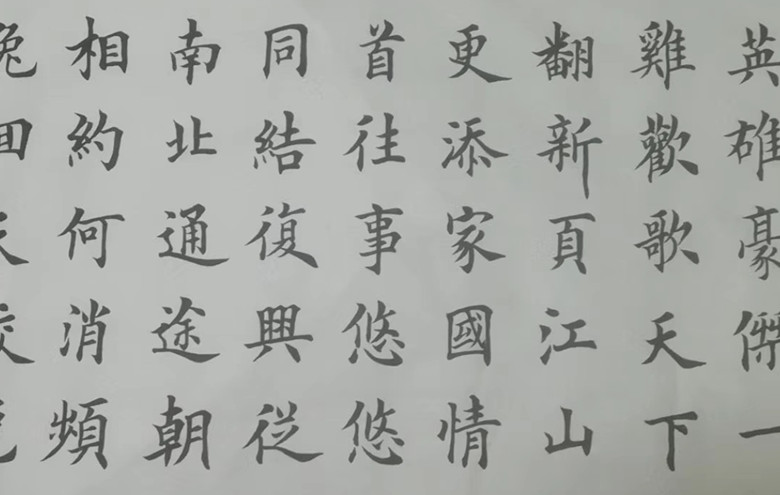 英雄豪一
雞歡歌天下
翻新頁江山
更添家國情
首往事悠悠
同結復興從
南北通途朝
相約何消頻
兔回